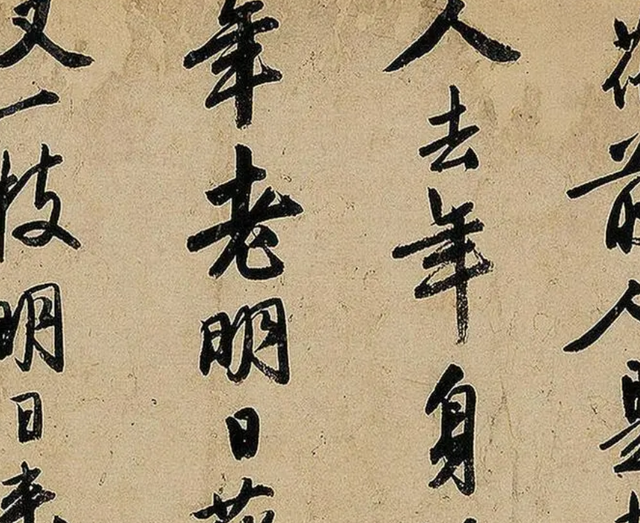 花前人是
人去年身
年老明日花
又一枝明日来